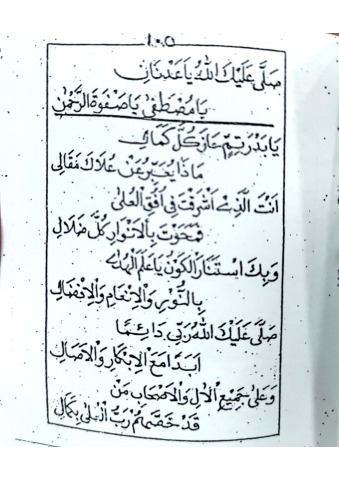 ١٠٥
صَلَّى عَلَيْكَ اللهُ يَا عَدْنَانِ
يَا مُصْطَفَى يَا صَفْوَةَ الرَّحْمٰنِ
يَا بَدْرَ تِمٍّ حَازَ كُلَّ كَمَالِ
مَاذَا يُعَبِّرُ عَنْ عُلَاكَ مَقَالِي
اَنْتَ الَّذِيْ اَشْرَقْتَ فِي اُفُقِ الْعُلٰى
فَمَحَوْتَ بِالْاَنْوَارِ كُلَّ ضَلَالِ
وَبِكَ اسْتَنَارَ الْكَوْنُ يَا عَلَمَ الْهُدٰى
بِالنُّوْرِ وَالْاِنْعَامِ وَالْاِفْضَالِ
صَلَّى عَلَيْكَ اللهُ رَبِّيْ دَائِمًا
اَبَدًا مَعَ الْاِبْكَارِ وَالْاٰصَالِ
وَعَلٰى جَمِيْعِ الْاٰلِ وَالْاَصْحَابِ مَنْ
قَدْ خَصَّهُمْ رَبُّ الْعُلٰى بِكَمَالِ